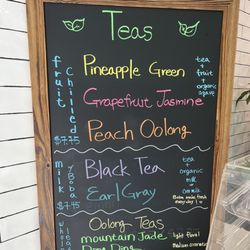 Teas
fruit
chilled
$7.75
Pineapple Green
Grapefruit Jasmine
Peach Oolong
tea
+
fruit
+
organic
agave
milk
$7.75
Black Tea
Earl Gray
tea
+
organic
milk
Boba made fresh
everyday
Oolong Teas
mountain Jade
light floral